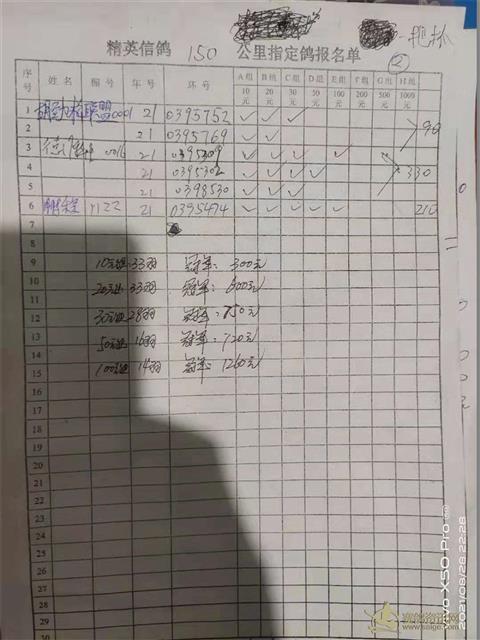 ②
精英信鸽 150 公里指定鸽报名单
序号 姓名 棚号 年号 环号 A组10元 B组20元 C组30元 D组50元 E组100元 F组200元 G组500元 H组1000元
1 联盟 0001 21 0395752 ✓ ✓ ✓
2 21 0395769 ✓ ✓ 90
3 0016 21 0395309 ✓ ✓ ✓ ✓ ✓
4 21 0395302 ✓ ✓ ✓ ✓ 330
5 21 0398530 ✓ ✓ ✓
6 鹏程 21 0395474 ✓ ✓ ✓ ✓ ✓ 210
7
8
9 10元组 33羽 冠军：300元
10 20元组 33羽 冠军：600元
11
12 30元组 28羽 冠军：750元
13 50元组 16羽 冠军：720元
14
15 100元组 14羽 冠军：1260元
16
17
18
19
20
21
22
23
24
25
26
27
28
29
30
vivo X50 Pro
2021/08/28 22:28